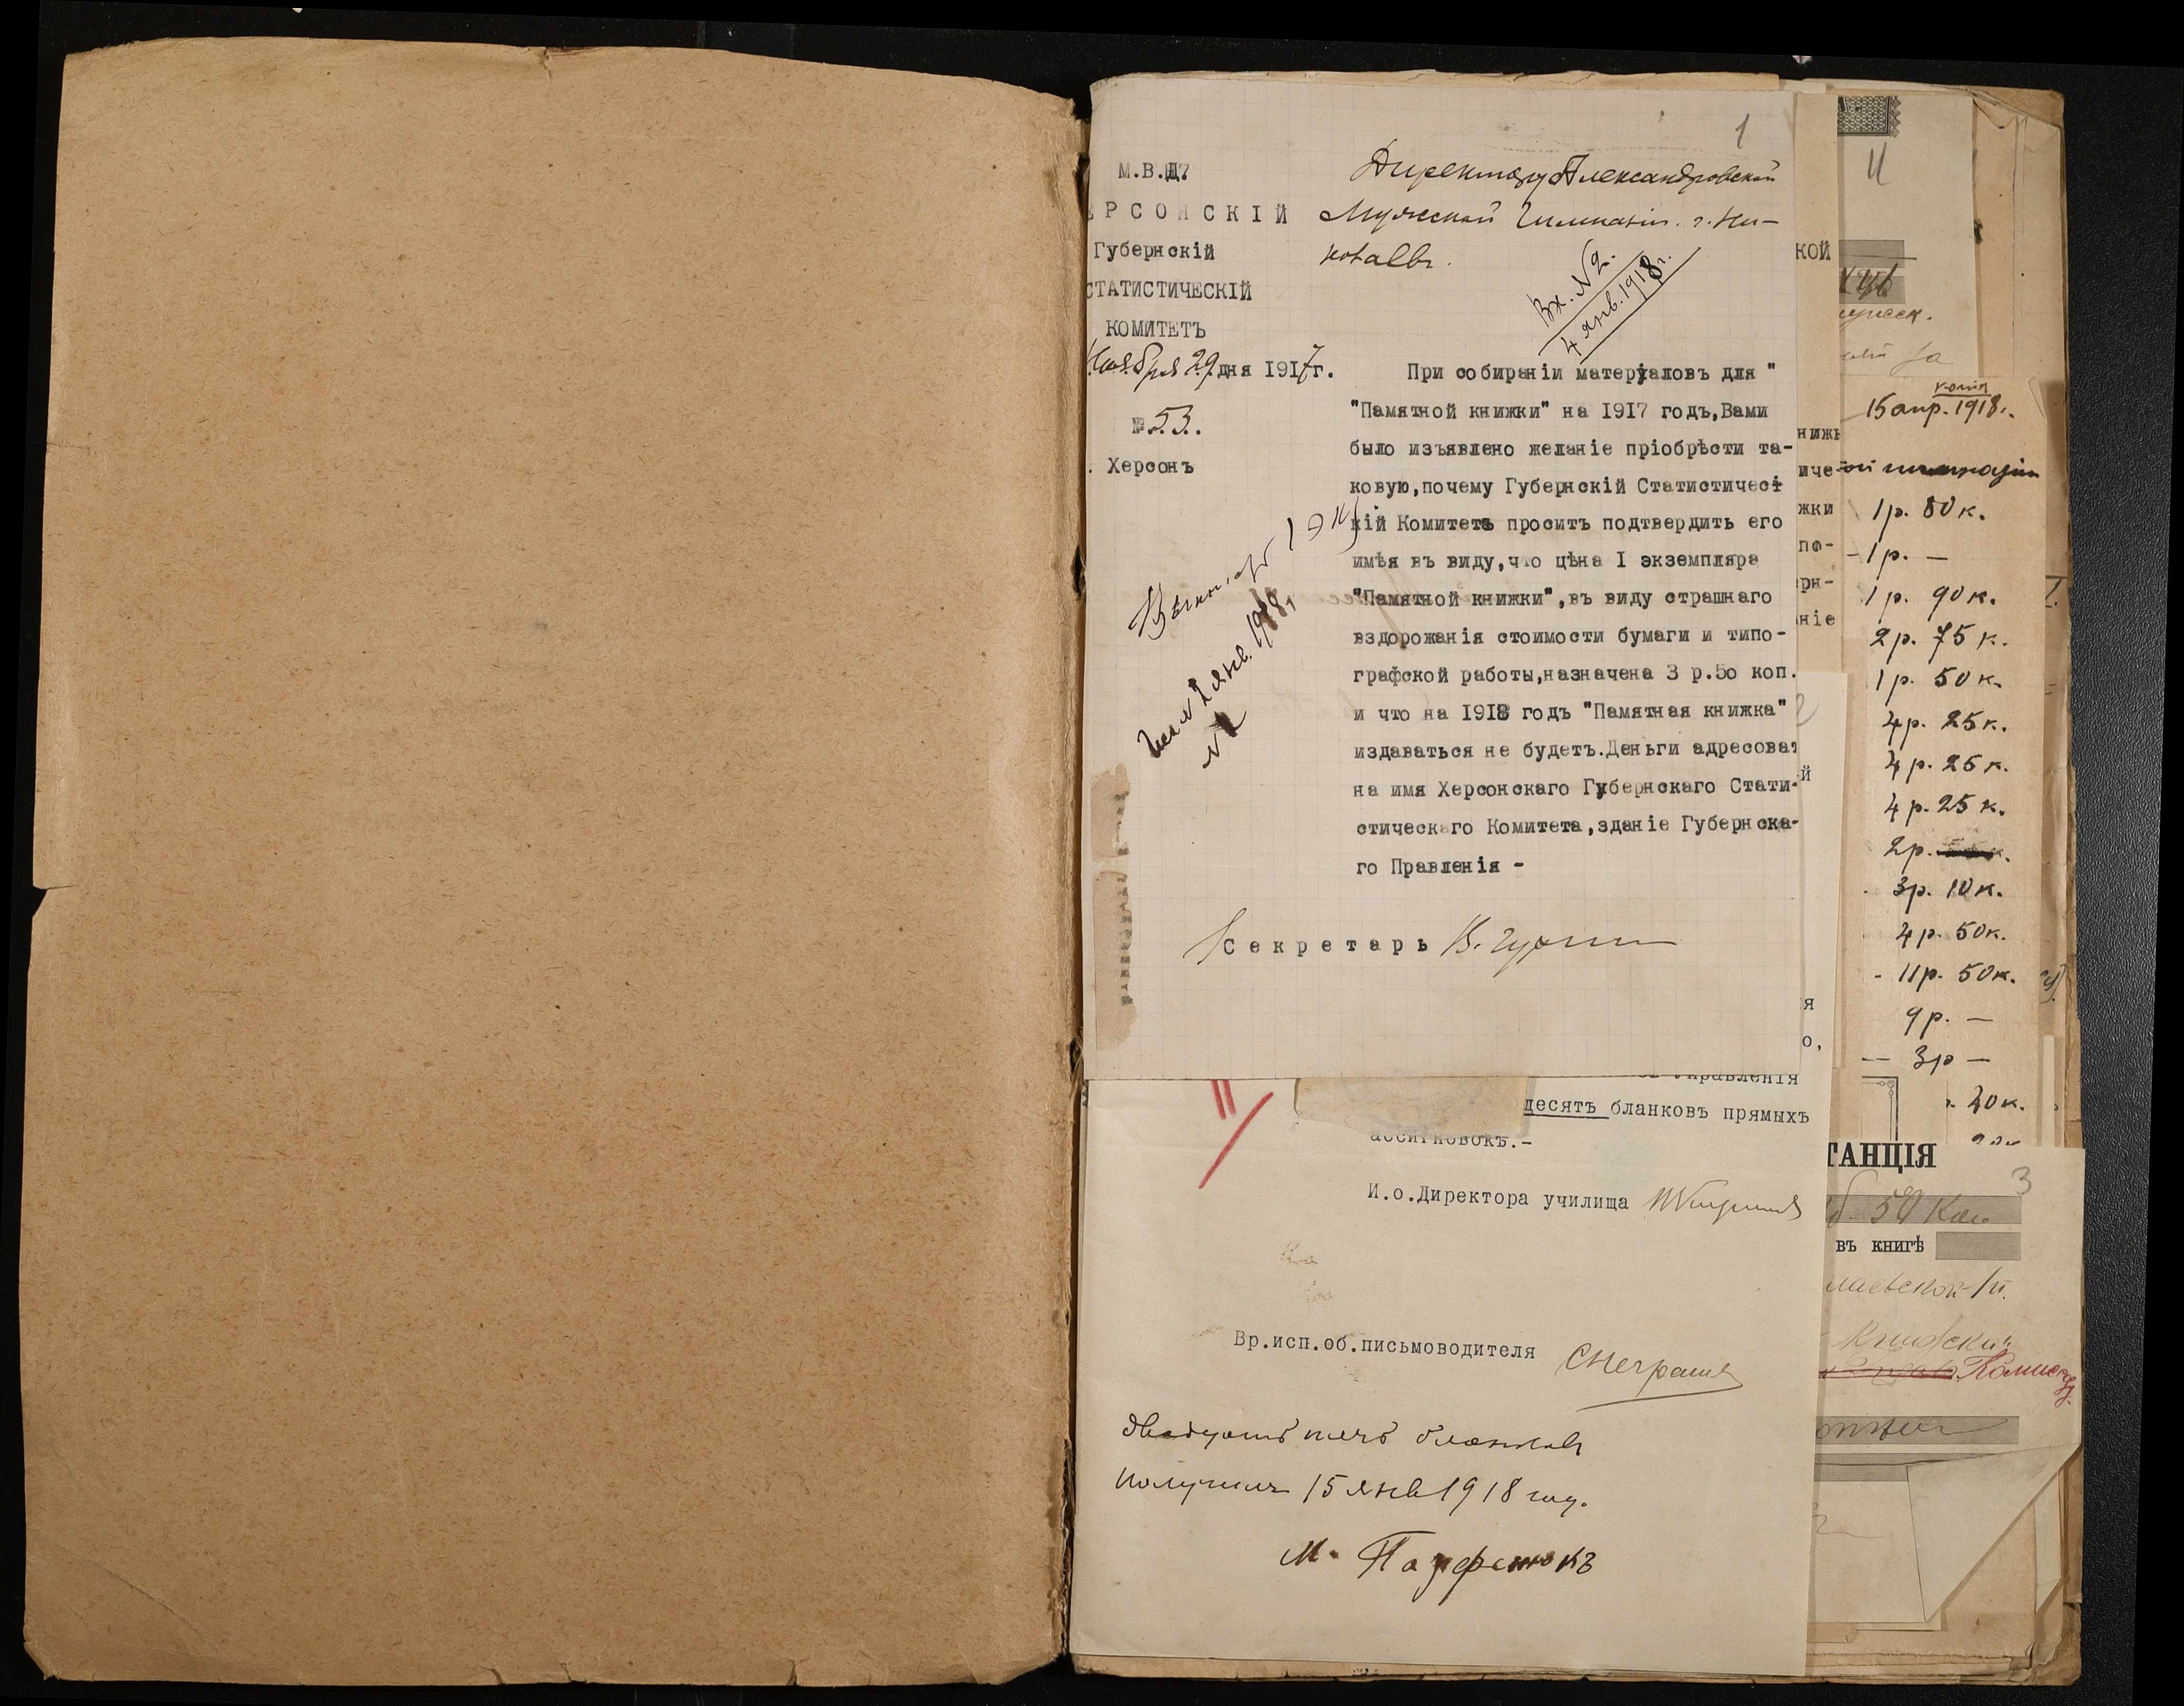 1
М.В.Д.
ЕРСОНСКІЙ
Губернскій
СТАТИСТИЧЕСКІЙ
КОМИТЕТЪ
Ноября 29 дня 1917г.
№ 53.
. Херсонъ
Директору Александровской
Мужской Гимназіи г. Ни-
колаевъ.
Вх. № 2.
4 янв. 1918 г.
При собираніи матеріаловъ для "
"Памятной книжки" на 1917 годъ,Вами
было изъявлено желаніе пріобрѣсти та-
ковую,почему Губернскій Статистичес
кій Комитетъ проситъ подтвердить его
имѣя въ виду,что цѣна I экземпляра
"Памятной книжки",въ виду страшнаго
вздорожанія стоимости бумаги и типо-
графской работы,назначена 3 р.5о коп.
и что на 1918 годъ "Памятная книжка"
издаваться не будетъ.Деньги адресоват
на имя Херсонскаго Губернскаго Стати-
стическаго Комитета,зданіе Губернска-
го Правленія -
1 экз
янв. 1918 г
№
Секретарь В.
Управленія
десятъ бланковъ прямыхъ
ассигновокъ.-
И.о.Директора училища
Вр.исп.об.письмоводителя
Двадцать пять бланковъ
получилъ 15 янв 1918 году.
М. Парфенюкъ
кой
нижк
иче
жки
по-
рн-
ніе
й
я
о,
11
копія
15 апр. 1918 г.
ой гимназіи
1 р. 80 к.
1 р. —
1 р. 90 к.
2 р. 75 к.
1 р. 50 к.
4 р. 25 к.
4 р. 25 к.
4 р. 25 к.
2 р.
3 р. 10 к.
4 р. 50 к.
- 11 р. 50 к.
9 р. —
— 3 р —
20 к.
ТАНЦІЯ
3
б. 50 Коп
въ книгѣ